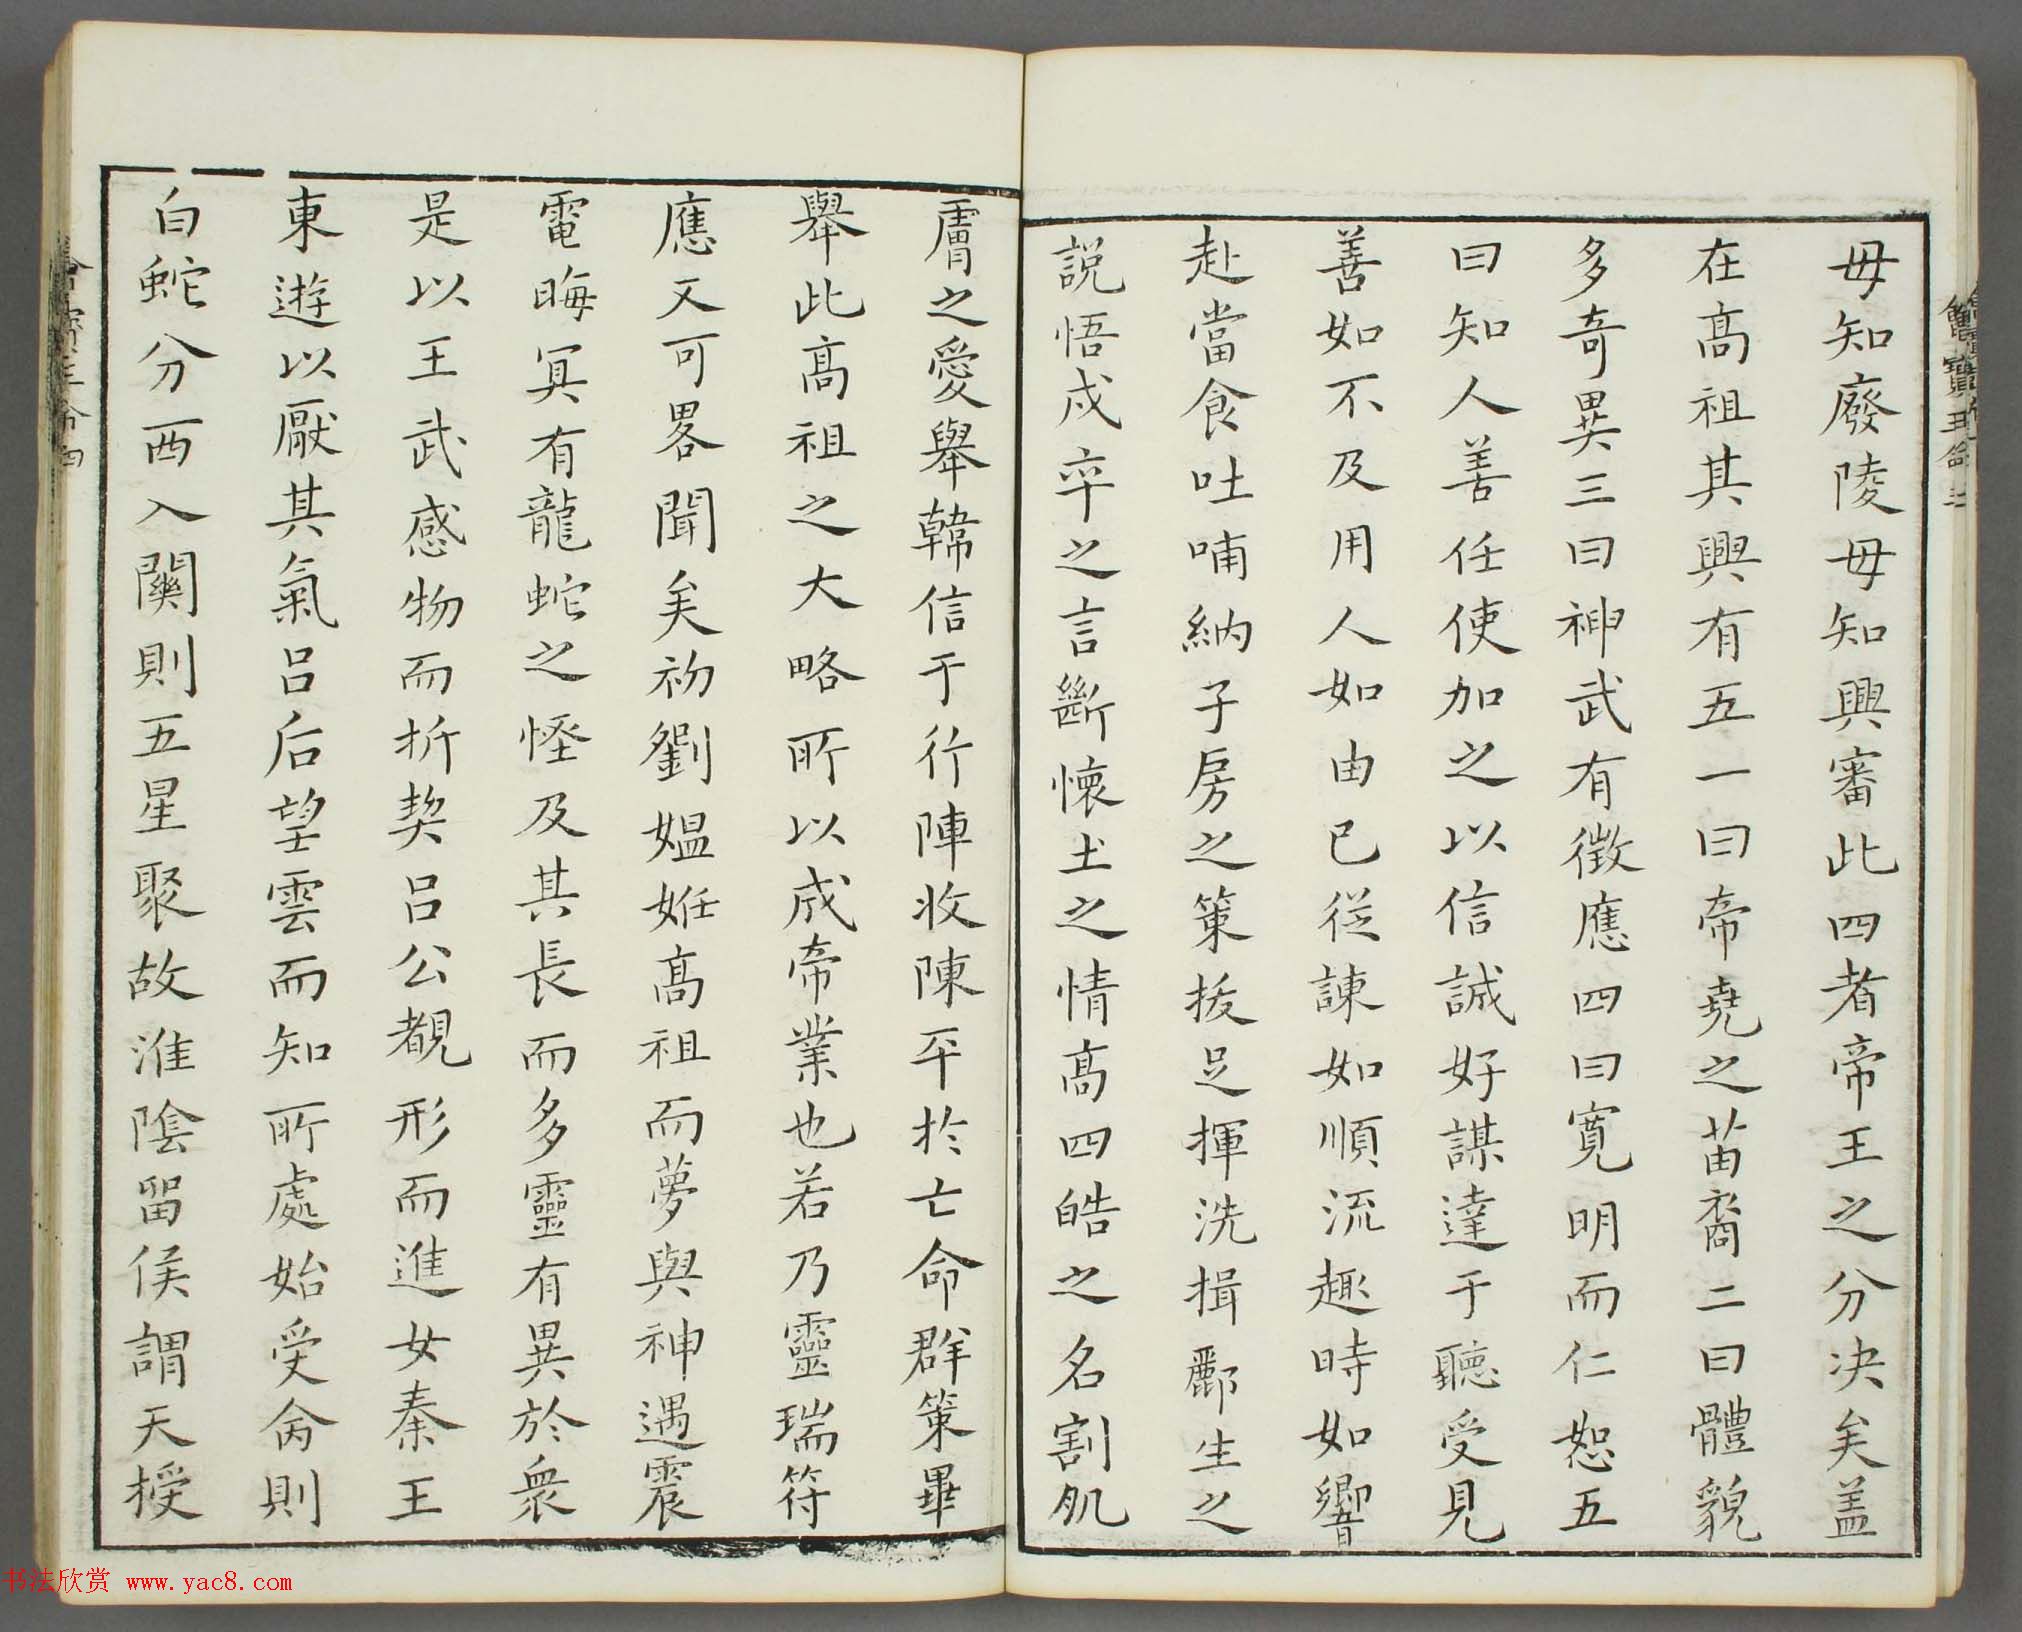 毋知廢陵毋知興審此四者帝王之分决矣盖
在髙祖其興有五一曰帝堯之苗裔二曰體貌
多奇異三曰神武有徵應四曰寛明而仁恕五
曰知人善任使加之以信誠好謀達于聽受見
善如不及用人如由已從諫如順流趣時如響
赴當食吐哺納子房之策拔足揮洗揖酈生之
説悟戍卒之言斷懷土之情髙四皓之名割肌
膚之愛舉韓信于行陣收陳平於亡命群策畢
舉此髙祖之大略所以成帝業也若乃靈瑞符
應又可畧聞矣初劉媼姙髙祖而夢與神遇震
電晦冥有龍蛇之怪及其長而多靈有異於衆
是以王武感物而折契吕公覩形而進女秦王
東遊以厭其氣吕后望雲而知所處始受命則
白蛇分西入關則五星聚故淮陰留侯謂天授
书法欣赏 www.yac8.com